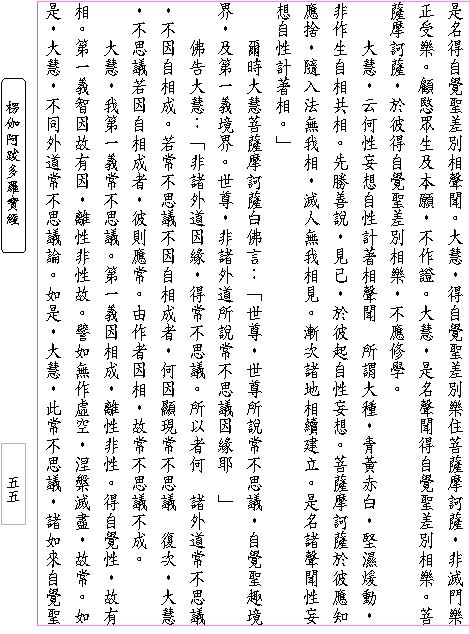 是名得自覺聖差別相聲聞。大慧，得自覺聖差別樂住菩薩摩訶薩，非滅門樂
正受樂。顧愍眾生及本願，不作證。大慧，是名聲聞得自覺聖差別相樂。菩
薩摩訶薩，於彼得自覺聖差別相樂，不應修學。
大慧，云何性妄想自性計著相聲聞　所謂大種，青黃赤白，堅濕煖動，
非作生自相共相。先勝善說，見已，於彼起自性妄想。菩薩摩訶薩於彼應知
應捨，隨入法無我相，滅人無我相見。漸次諸地相續建立。是名諸聲聞性妄
想自性計著相。」
爾時大慧菩薩摩訶薩白佛言：「世尊，世尊所說常不思議，自覺聖趣境
界，及第一義境界。世尊，非諸外道所說常不思議因緣耶　」
佛告大慧：「非諸外道因緣，得常不思議。所以者何　諸外道常不思議
，不因自相成。若常不思議不因自相成者，何因顯現常不思議　復次，大慧
，不思議若因自相成者，彼則應常。由作者因相，故常不思議不成。
大慧，我第一義常不思議。第一義因相成，離性非性。得自覺性，故有
相。第一義智因故有因，離性非性故。譬如無作虛空，涅槃滅盡，故常。如
是，大慧，不同外道常不思議論。如是，大慧，此常不思議，諸如來自覺聖
楞伽阿跋多羅寶經
五五